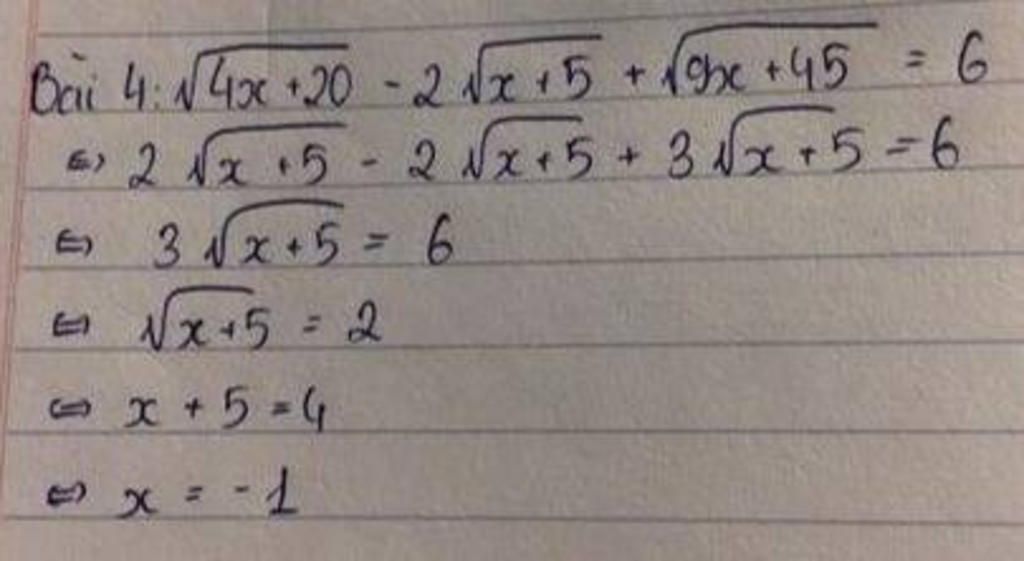 Bài 4: √(4x+20) - 2√(x+5) + √(9x+45) = 6
⇔ 2√(x+5) - 2√(x+5) + 3√(x+5) = 6
⇔ 3√(x+5) = 6
⇔ √(x+5) = 2
⇔ x + 5 = 4
⇔ x = -1